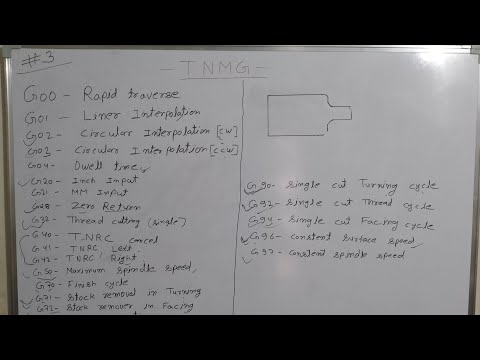 #3
- TNMG -
G00 - Rapid traverse
G01 - Liner Interpolation
G02 - Circular Interpolation [cw]
G03 - Circular Interpolation [ccw]
G04 - Dwell time
G20 - Inch Input
G21 - MM Input
G28 - Zero Return
G32 - Thread cutting (single)
G40 - TNRC Cancel
G41 - TNRC Left
G42 - TNRC Right
G50 - Maximum spindle speed
G70 - Finish cycle
G71 - Stock removal in Turning
G72 - Stock remover in Facing
G90 - single cut Turning cycle
G92 - single cut Thread cycle
G94 - single cut Facing cycle
G96 - constent surface speed
G97 - constent spindle speed